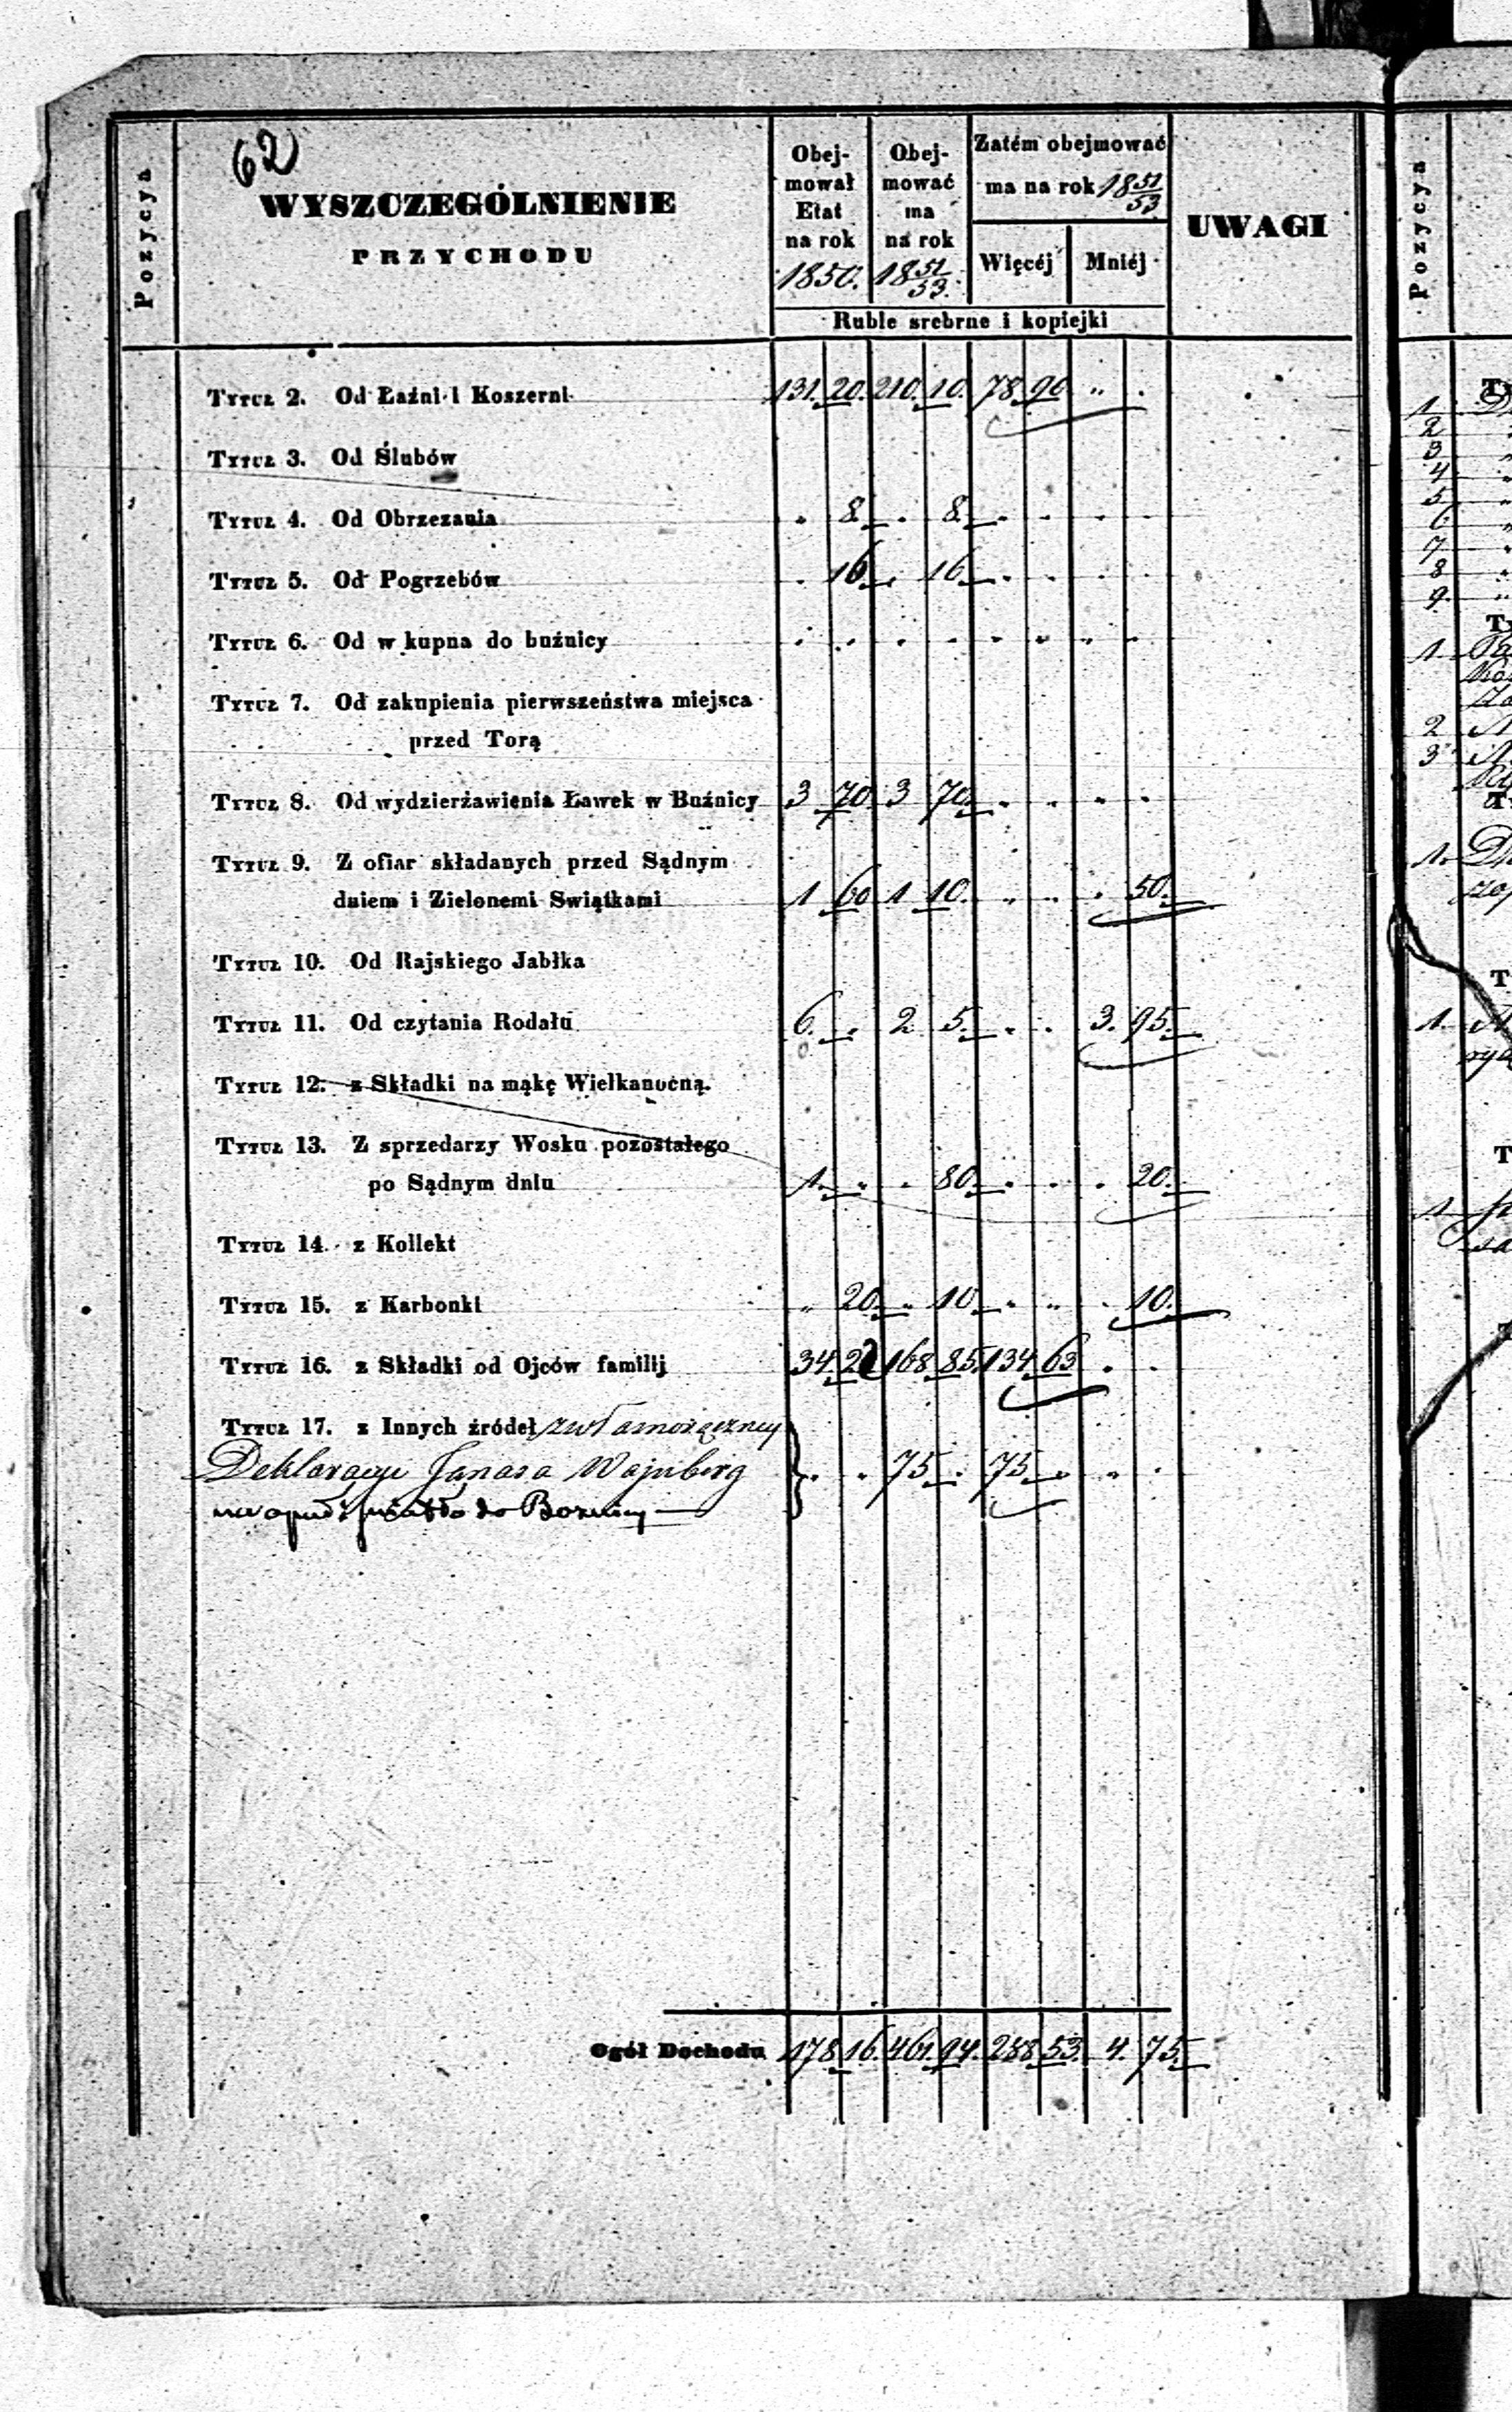 62
Pozycya
WYSZCZEGÓLNIENIE
PRZYCHODU
Obej-
mował
Etat
na rok
1850.
Obej-
mować
ma
na rok
18 51/53.
Zatém obejmować
ma na rok 18 51/53
Więcéj Mniéj
UWAGI
Ruble srebrne i kopiejki
Tytuł 2. Od Łaźni i Koszerni 131. 20. 210. 10. 78. 90 " .
Tytuł 3. Od Ślubów
Tytuł 4. Od Obrzezania . 8 . 8 . . . .
Tytuł 5. Od Pogrzebów . 16 . 16 . . . .
Tytuł 6. Od w kupna do buźnicy . . . . . . . .
Tytuł 7. Od zakupienia pierwszeństwa miejsca
przed Torą
Tytuł 8. Od wydzierżawienia Ławek w Buźnicy 3 70 3 70 . . . .
Tytuł 9. Z ofiar składanych przed Sądnym
dniem i Zielonemi Swiątkami 1 60 1 10. . . . 50.
Tytuł 10. Od Rajskiego Jabłka
Tytuł 11. Od czytania Rodału 6. . 2 5. . . 3. 95.
Tytuł 12. z Składki na mąkę Wielkanocną.
Tytuł 13. Z sprzedarzy Wosku pozostałego
po Sądnym dniu 1. . . 80. . . . 20.
Tytuł 14. z Kollekt
Tytuł 15. z Karbonki " 20. " 10. . " . 10.
Tytuł 16. z Składki od Ojców familij 34. 22 168 85. 134 63 . .
Tytuł 17. z Innych źródeł
Deklaracyi Janasa Wajnberg . . 75 . 75 . . .
do Boznicy
Ogół Dochodu 178. 16. 461. 94. 288 53. 4. 75.
Pozycya
1
2
3
4
5
6
7
8
9
1
2
3
1.
1.
1